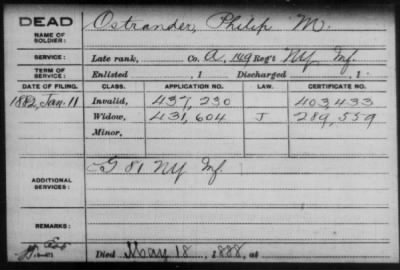 DEAD Ostrander, Philip M.
NAME OF
SOLDIER:
SERVICE: Late rank, Co. A, 149 Reg't NY Inf.
TERM OF
SERVICE: Enlisted , 1 Discharged , 1.
DATE OF FILING. CLASS. APPLICATION NO. LAW. CERTIFICATE NO.
1882, Jan. 11 Invalid, 437,230 403,433
Widow, 431,604 J 289,559
Minor,
G 81 NY Inf.
ADDITIONAL
SERVICES:
REMARKS:
Died May 18, 1888, at